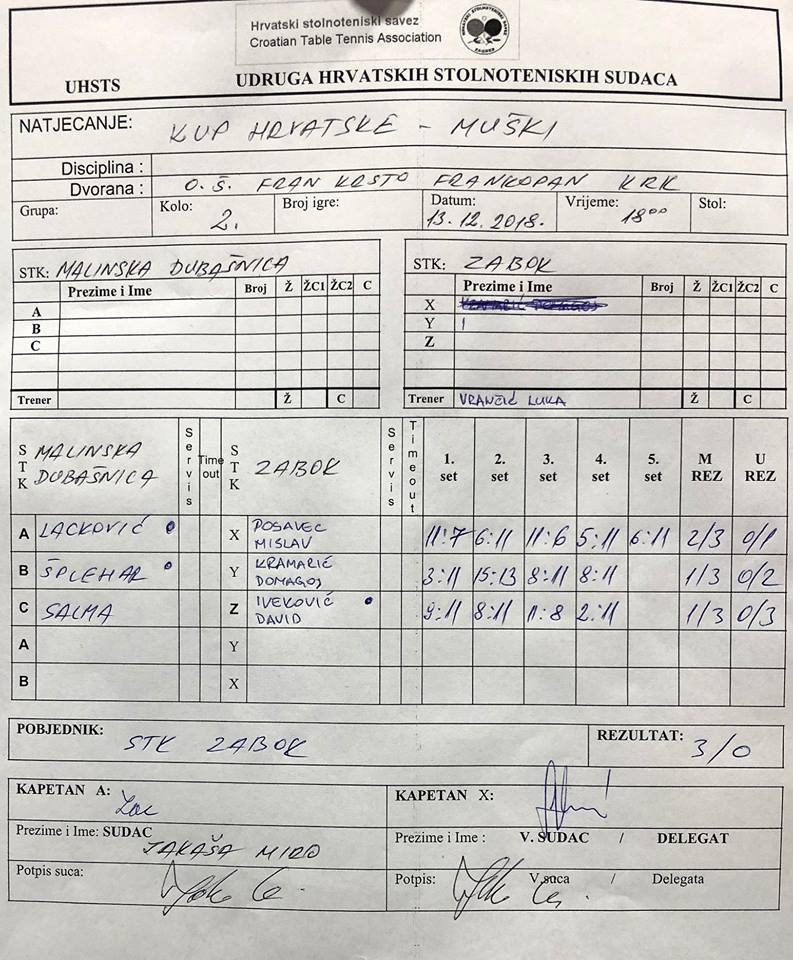 Hrvatski stolnoteniski savez
Croatian Table Tennis Association
UHSTS UDRUGA HRVATSKIH STOLNOTENISKIH SUDACA
NATJECANJE: KUP HRVATSKE - MUŠKI
Disciplina :
Dvorana : O.Š. FRAN KRSTO FRANKOPAN KRK
Grupa: Kolo: 2. Broj igre: Datum: 13.12.2018. Vrijeme: 18⁰⁰ Stol:
STK: MALINSKA DUBAŠNICA
Prezime i Ime Broj Ž ŽC1 ŽC2 C
A
B
C
Trener Ž C
STK: ZABOK
Prezime i Ime Broj Ž ŽC1 ŽC2 C
X
Y
Z
Trener VRANČIĆ LUKA Ž C
STK MALINSKA DUBAŠNICA Servis Time out STK ZABOK Servis Timeout 1. set 2. set 3. set 4. set 5. set M REZ U REZ
A LACKOVIĆ X POSAVEC MISLAV 11:7 6:11 11:6 5:11 6:11 2/3 0/1
B ŠPLEHAR Y KRAMARIĆ DOMAGOJ 3:11 15:13 8:11 8:11 1/3 0/2
C SALMA Z IVEKOVIĆ DAVID 9:11 8:11 11:8 2:11 1/3 0/3
A Y
B X
POBJEDNIK: STK ZABOK REZULTAT: 3/0
KAPETAN A: KAPETAN X:
Prezime i Ime: SUDAC JAKAŠA MIRO Prezime i Ime : V. SUDAC / DELEGAT
Potpis suca: Potpis: V.suca / Delegata